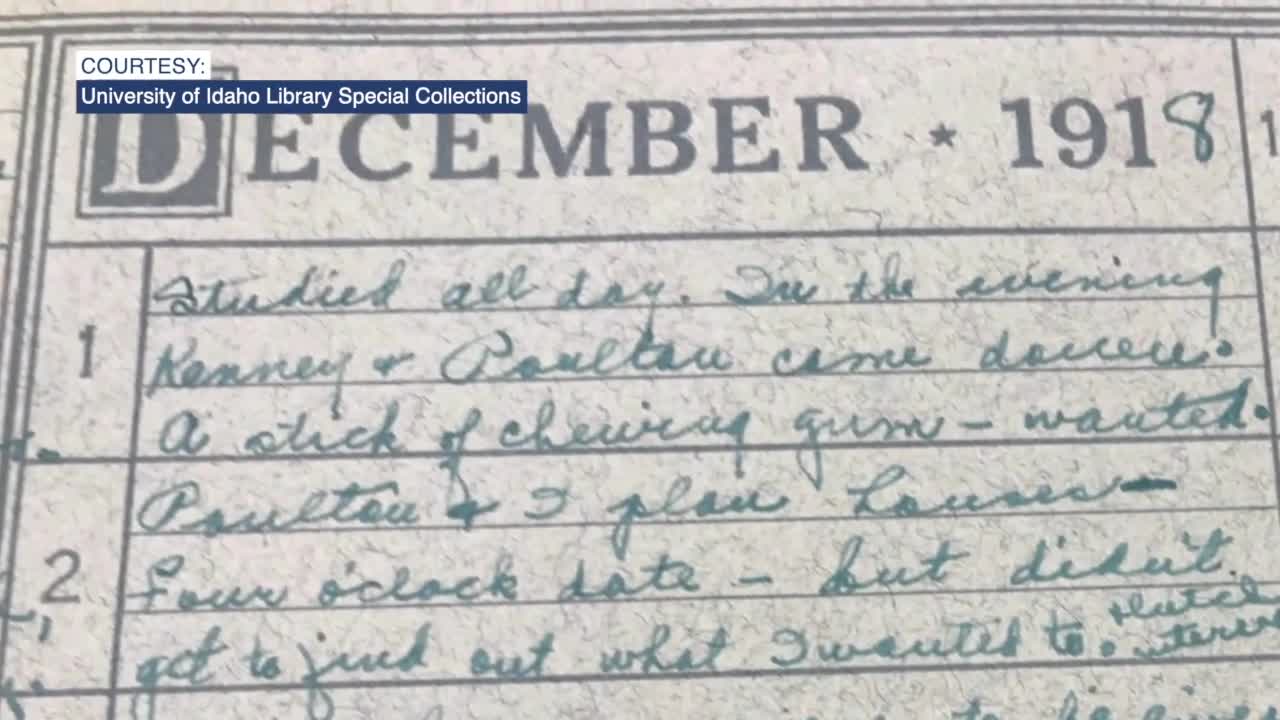 COURTESY:
University of Idaho Library Special Collections
DECEMBER ★ 1918
1
Studied all day. In the evening
Kenney & Poulton came down.
A stick of chewing gum – wanted.
2
Poulton & I plan houses –
Four o'clock date – but didn't
get to find out what I wanted to.